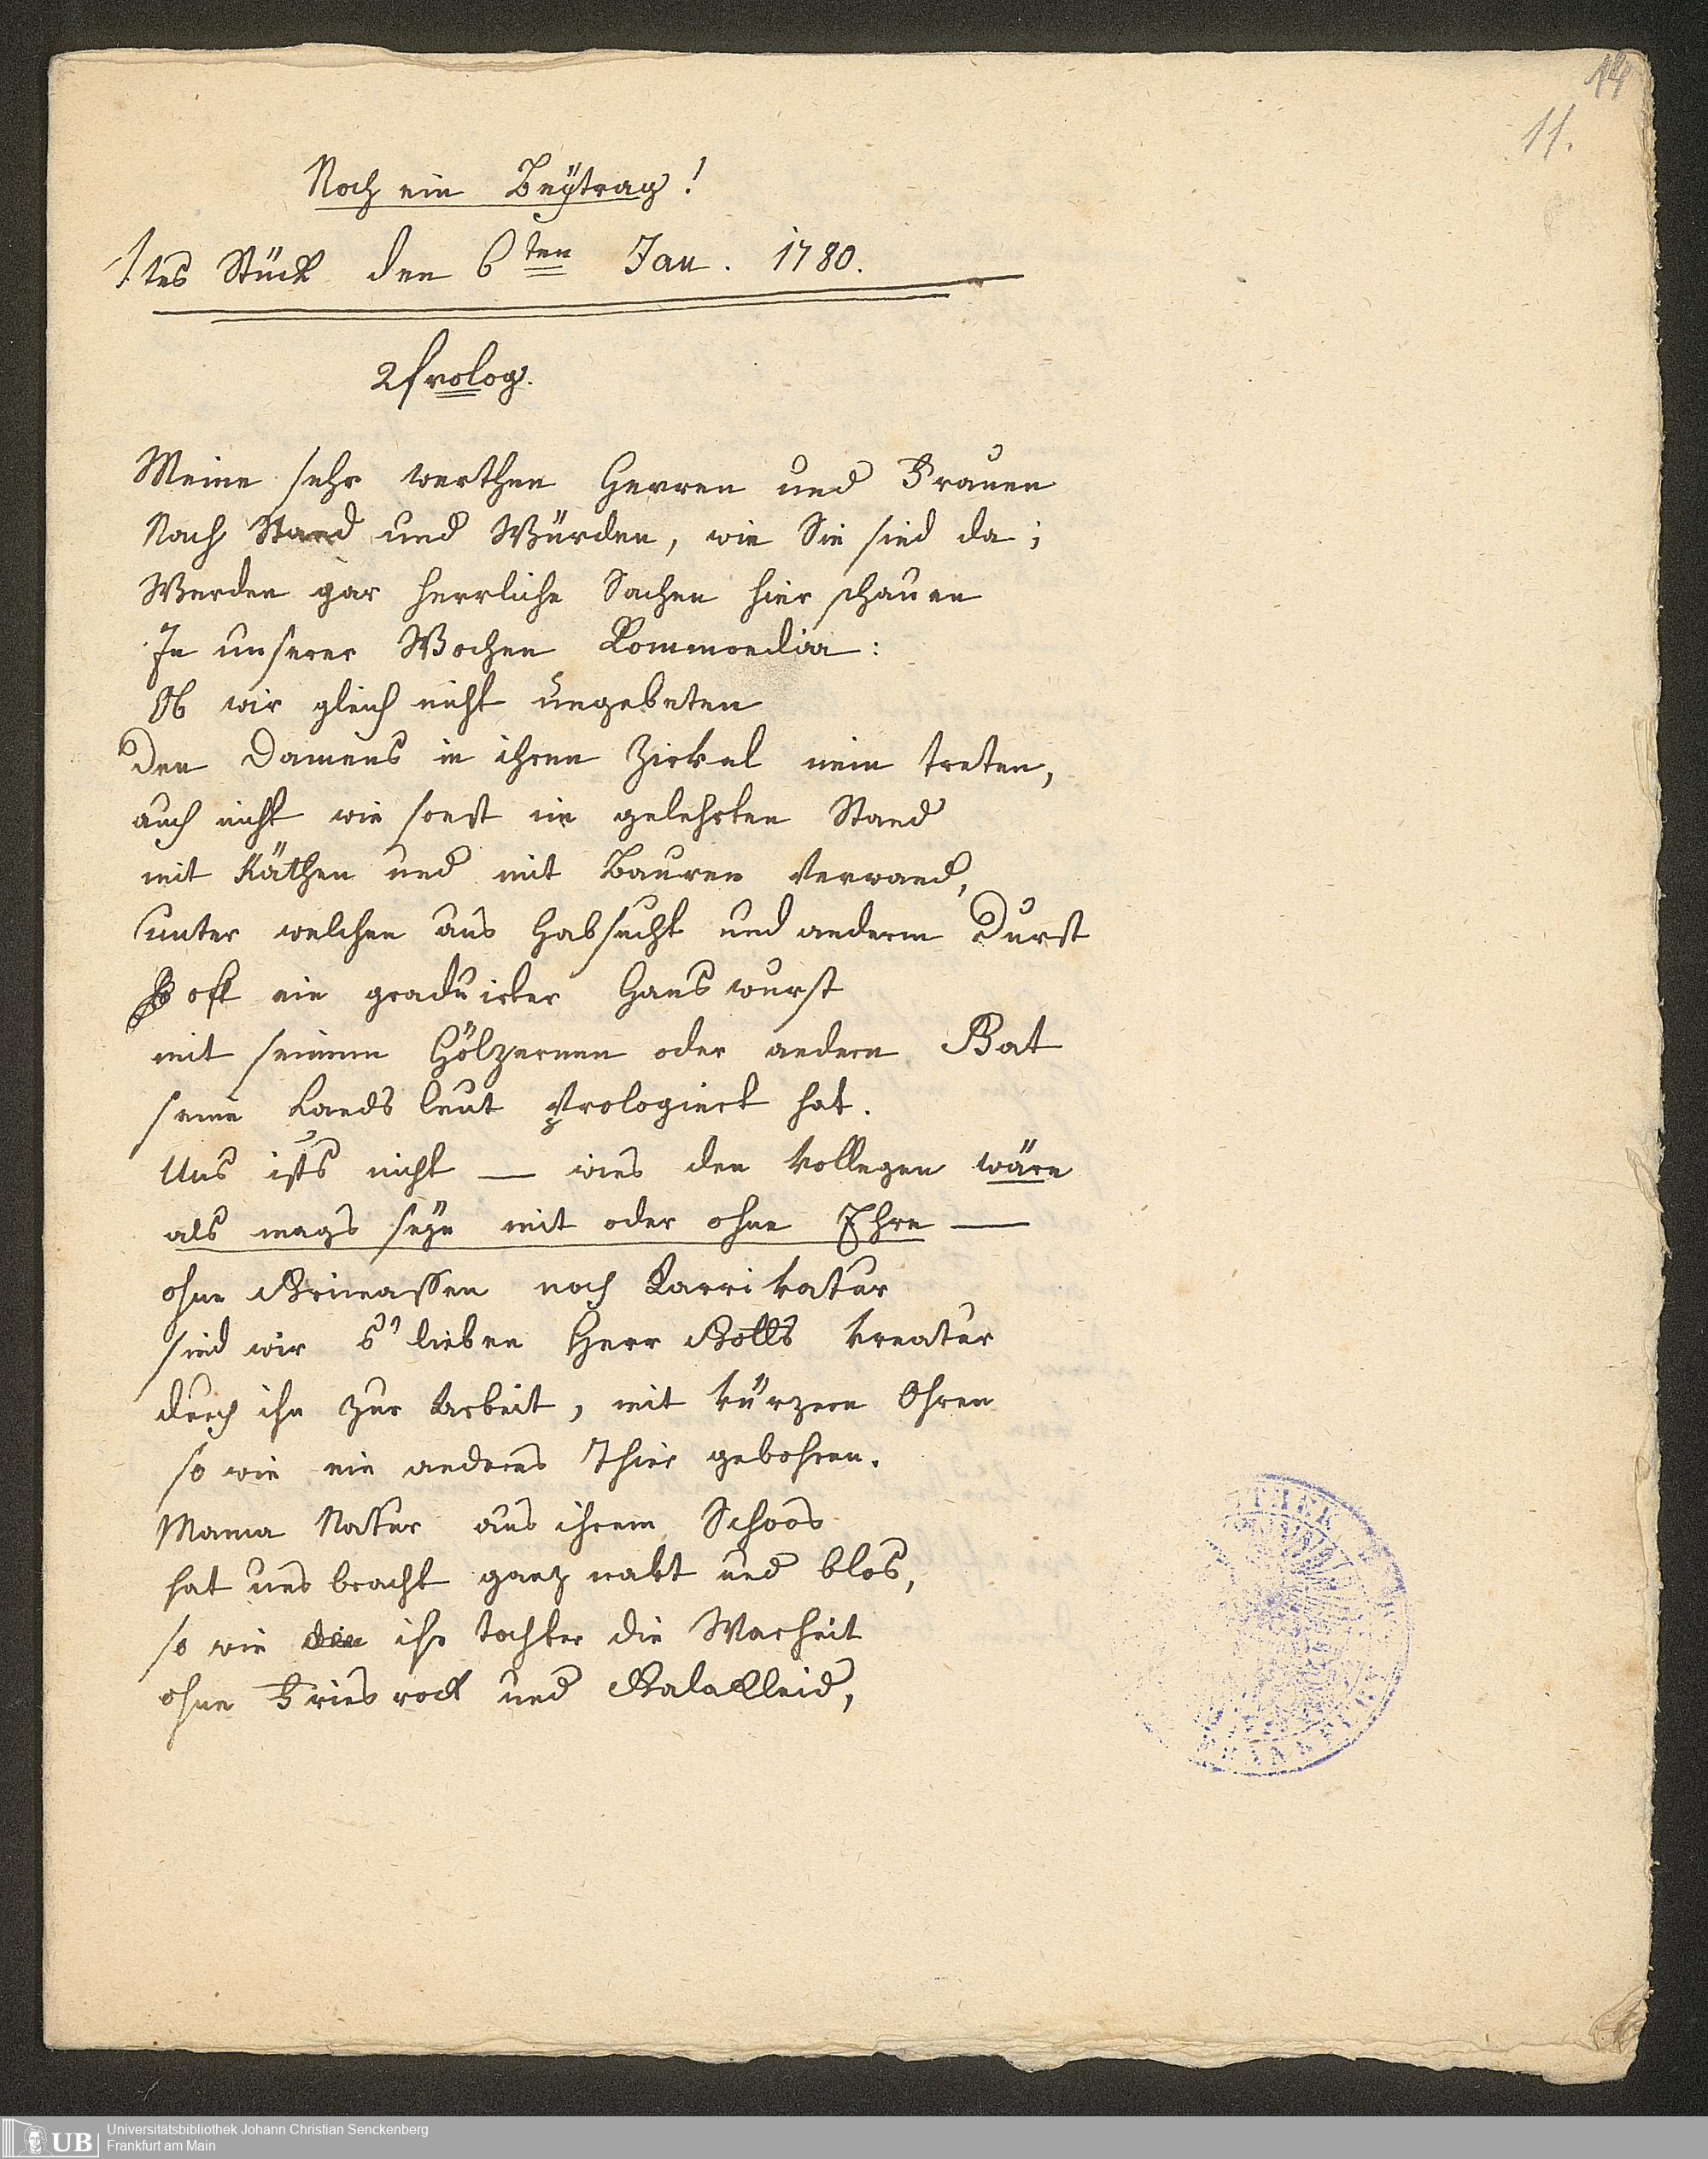 11.
Noch ein Beÿtrag!
1tes Stück den 6ten Jan. 1780.
Prolog.
Meine sehr werthen Herren und Frauen
Nach Stand und Würden, wie Sie sind da;
Werden gar herrliche Sachen hier schauen
In unserer Wochen Kommoedia:
Ob wir gleich nicht ungebeten
Den Damens in ihren Zirkel nein treten,
auch nicht wie sonst im gelehrten Stand
mit Räthen und mit Bauren verwand,
unter welchen aus Habsucht und anderm Durst
oft ein graduirter Hans wurst
mit seinem Hölzernen oder andern Bat
seine Lands leut prologiert hat.
Uns ists nicht — wies den kollegen wäre
als mags seÿn mit oder ohne Ehre —
ohne Grimassen noch Karrikatur
sind wir s' lieben Herr Gotts kreatur
durch ihn zur Arbeit, mit kürzern Ohren
so wie ein anderes Thier gebohren.
Mama Natur aus ihrem Schoos
hat uns bracht ganz nakt und blos,
so wie die ihr tochter die Warheit
ohne Friesrock und Galakleid,
Universitätsbibliothek Johann Christian Senckenberg
UB Frankfurt am Main